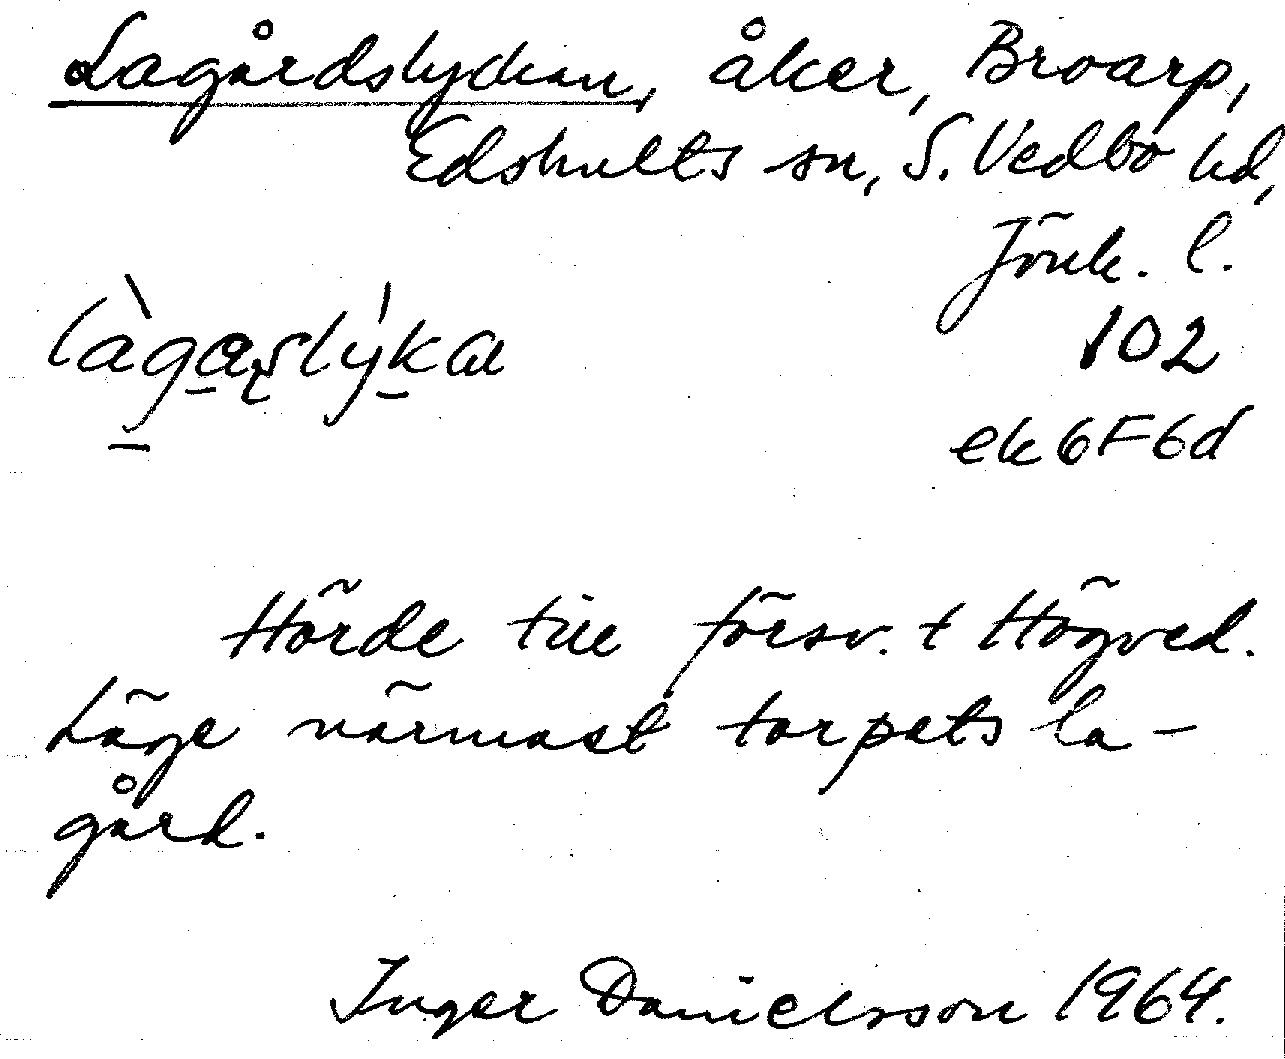 Lagårdslyckan, åker, Broarp,
Edshults sn, S. Vedbo hd,
Jönk. l.
làgaslýka
102
ek 6F6d
Hörde till försv. t Högved.
Läge närmast torpets la-
gård.
Inger Danielsson 1964.